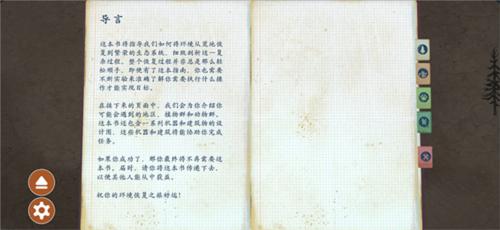 导言
这本书将指导我们如何将环境从荒地恢
复到繁荣的生态系统，细致剖析这一复
杂过程。整个恢复过程并非总是那么轻
松顺手，即使有了这本指南，你也需要
不断实验来准确了解你需要执行什么操
作才能实现目标。
在接下来的页面中，我们会为你介绍你
可能会遇到的地区、植物群和动物群。
这本书还包含一系列机器和建筑物的设
计图，这些机器和建筑将能协助你完成
任务。
如果你成功了，那你最终将不再需要这
本书。届时，请你将这本书传递下去，
以使其他人能从中获益。
祝你的环境恢复之旅好运！